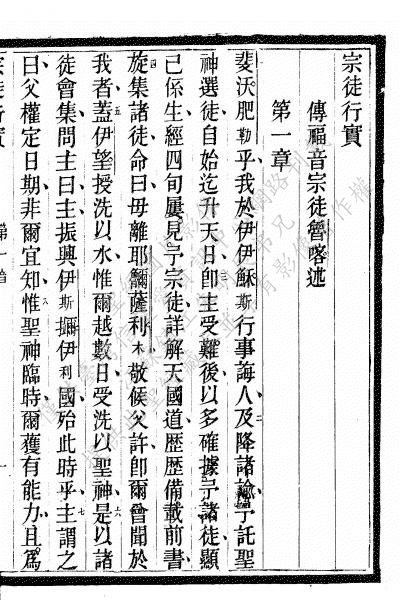 宗徒行實
傳福音宗徒魯喀述
第一章
斐沃肥勒乎我於伊伊穌斯行事誨人及降諸諭予託聖
神選徒自始迄升天日卽主受難後以多確據予諸徒顯
己係生經四旬屢見予宗徒詳解天國道歷歷備載前書
四
旋集諸徒命曰毋離耶薩利木敬候父許卽爾曾聞於
五
我者蓋伊望授洗以水惟爾越數日受洗以聖神是以諸
六
徒會集問主曰主振興伊斯伊利國始此時乎主謂之
七
曰父權定日期非爾宜知惟聖神臨時爾獲有能力且爲
宗徒行實
第一章
一